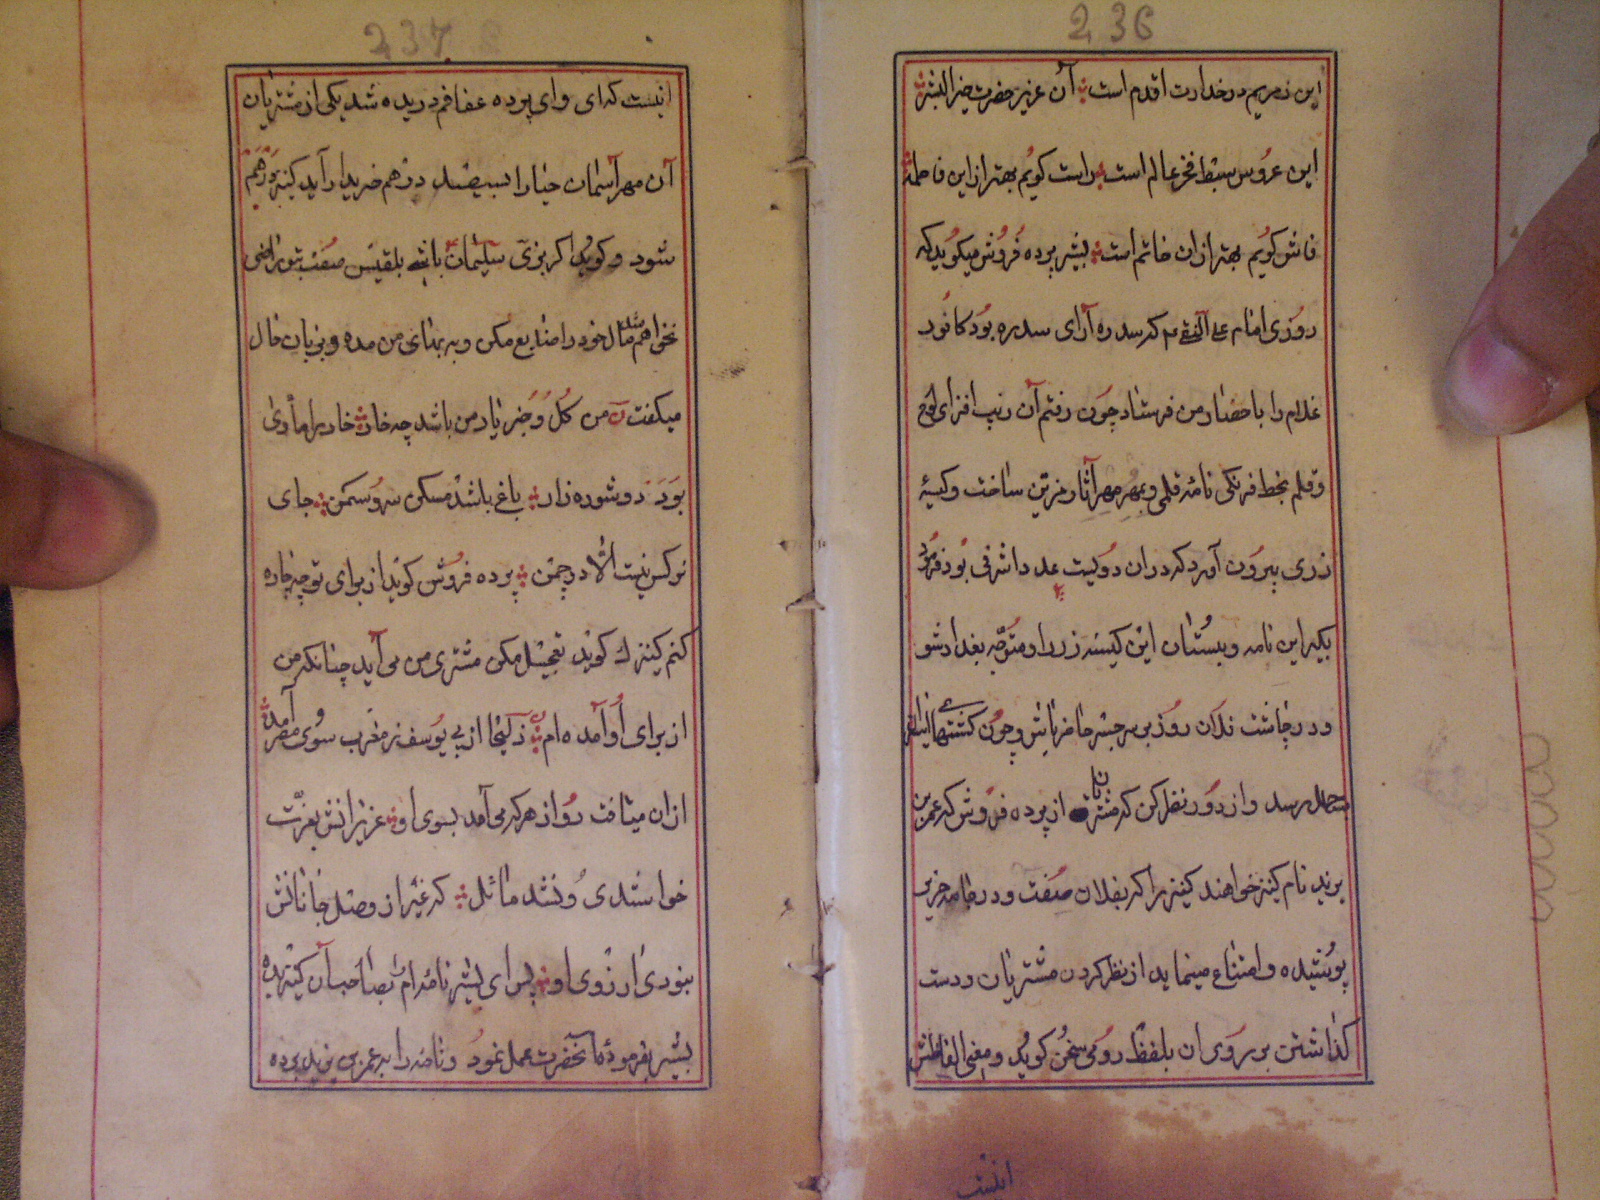 236
این ز مریم در خدارت اقدم است آن عزیز حضرت خیر البشر
این عروس سبط فخر عالم است راست کویم بهتر از این فاطمه
فاش کویم بهتر از ان خاتم است بشیر برده فروش میکوید که
روزی امام علی النقی ع م که سدره آرای سدره بود کافور
غلام را باحضار من فرستاد چون رفتم آن زیب افزای لوح
و قلم بخط فرنکی نامه قلمی و بمهر مهر آثار مزین ساخت و کیسهٔ
زری بیرون آورد که در ان دویست عدد اشرفی بود فرمود
بکیر این نامه و بستان این کیسه زر را و متوجه بغداد شو
و در چاشت فلان روز بر سر جسر حاضر باش و چون کشتیهای
برسد و از دور نظر کن که مشتریان از برده فروش که عمر بن
یزید نام کنیز خواهند کنیزیرا که بفلان صفت و دو جامه حریر
پوشیده و امتناع مینماید از نظر کردن مشتریان و دست
کذاشتن بر روی ان بلفظ رومی سخن کوید و معنی الفاظش
اینست
237
اینست که ای وای پرده عفافم دریده شد یکی از مشتریان
آن مهر آسمان حیا را بسیصد درهم خریدار آید کنیز درهم
شود و کوید اکر بزی سلیمان باشی بلقیس صفت شوهر
نخواهم مال خود را ضایع مکن و به بهای من مده و بزبان حال
میکفت من کل و جز یار من باشد چه خار خار را مأوی
بود در شوره زار باغ باشد مسکن سرو و سمن جای
نرکس نیست الا در چمن برده فروش کوید از برای تو چه چاره
کنم کنیزک کوید تعجیل مکن مشتری من می آید چنانکه من
از برای او آمده ام زلیخا از پی یوسف ز مغرب سوی مصر آمد
از ان میتافت رو از هر که می آمد بسوی او عزیزانش بعزت
خواستندی و نشد مائل که غیر از وصل جانانش
نبودی آرزوی او پس ای بشیر نامه ام بصاحب آن کنیز بده
بشیر بفرمودهٔ آنحضرت عمل نمود و نامه را به عمر بن یزید برده